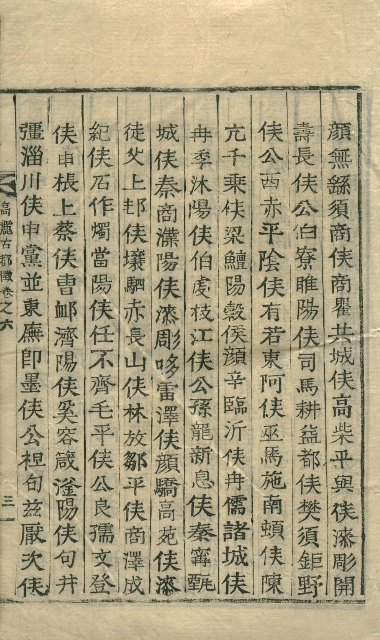 顔無繇須商侯商瞿共城侯高柴平輿侯漆彫開
壽長侯公伯寮睢陽侯司馬耕益都侯樊須鉅野
侯公西赤平陰侯有若東阿侯巫馬施南頓侯陳
亢千乘侯梁鱣陽穀侯顔辛臨沂侯冉儒諸城侯
冉季沐陽侯伯虔枝江侯公孫龍新息侯秦甯甄
城侯秦商濮陽侯漆彫哆雷澤侯顔驕高苑侯漆
徒父上邽侯壤駟赤長山侯林放鄒平侯商澤成
紀侯石作燭當陽侯任不齊毛平侯公良孺文登
侯申棖上蔡侯曹卹濟陽侯奚容箴滏陽侯句井
彊淄川侯申黨並東廡卽墨侯公祖句玆厭次侯
高麗古都徵卷之六
三